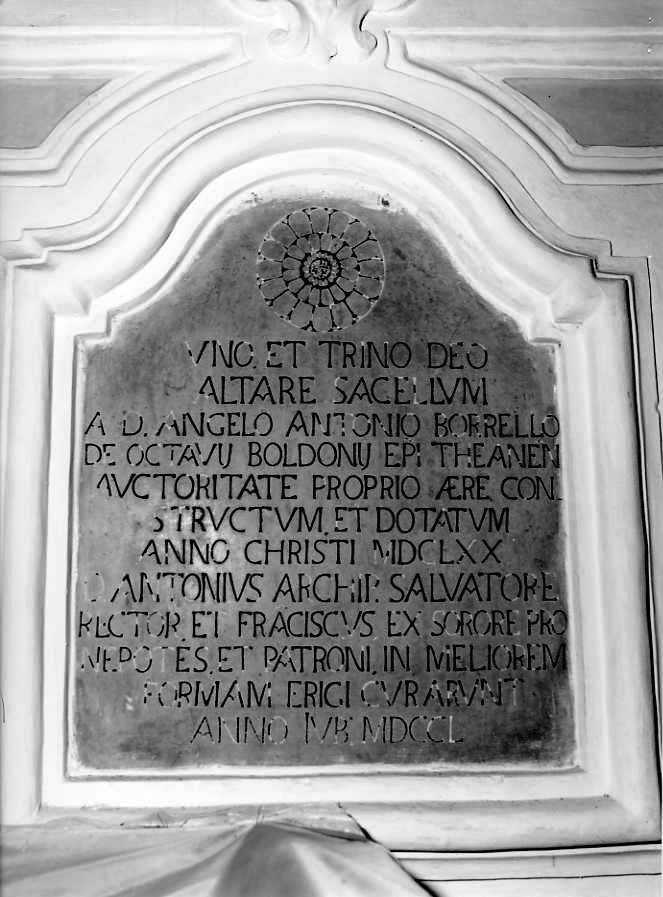 VNO. ET TRINO DEO
ALTARE SACELLVM
A D. ANGELO ANTONIO BORRELLO
DE OCTAVIJ BOLDONIJ EPI THEANEN
AVCTORITATE PROPRIO ÆRE CON
STRVCTVM. ET DOTATVM
ANNO CHRISTI MDCLXX
D ANTONIVS ARCHIP. SALVATORE
RECTOR. ET FRACISCVS EX SORORE PRO
NEPOTES. ET PATRONI. IN MELIOREM
FORMAM ERICI CVRARVNT
ANNO IVB MDCCL